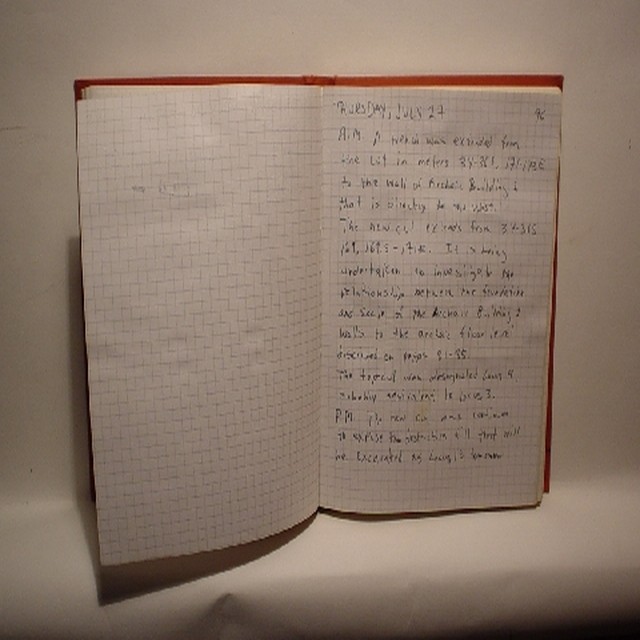 THURSDAY, JULY 27 96
A.M. A trench was extended from
the cut in meters
to the wall of Archaic Building
that is directly to the west.
The new cut extends from
It is being
undertaken to investigate the
relationship between the foundation
and of the Archaic Building
walls to the archaic floor level
described on pages 91-95.
The topsoil was designated Locus 9,
probably equivalent to Locus 1.
P.M. The new cut was
to expose the destruction fill that will
be excavated as Locus tomorrow